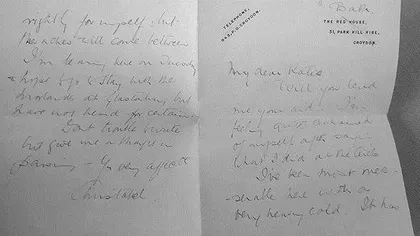 Bath
THE RED HOUSE,
51, PARK HILL RISE,
CROYDON.
TELEPHONE,
P.O. CROYDON.
My dear Kate.
Will you lend
me your
feeling quite ashamed
of myself after
what I did at the
I've been most mis-
-erable here with a
very heavy cold. It has
rightly for myself: but
the aches will come between
I'm leaving here on Tuesday
hope to stay with the
at Glastonbury but
have not heard for certain
Dont trouble to write
but give me a thought in
passing - Yr very affecte
Christabel.